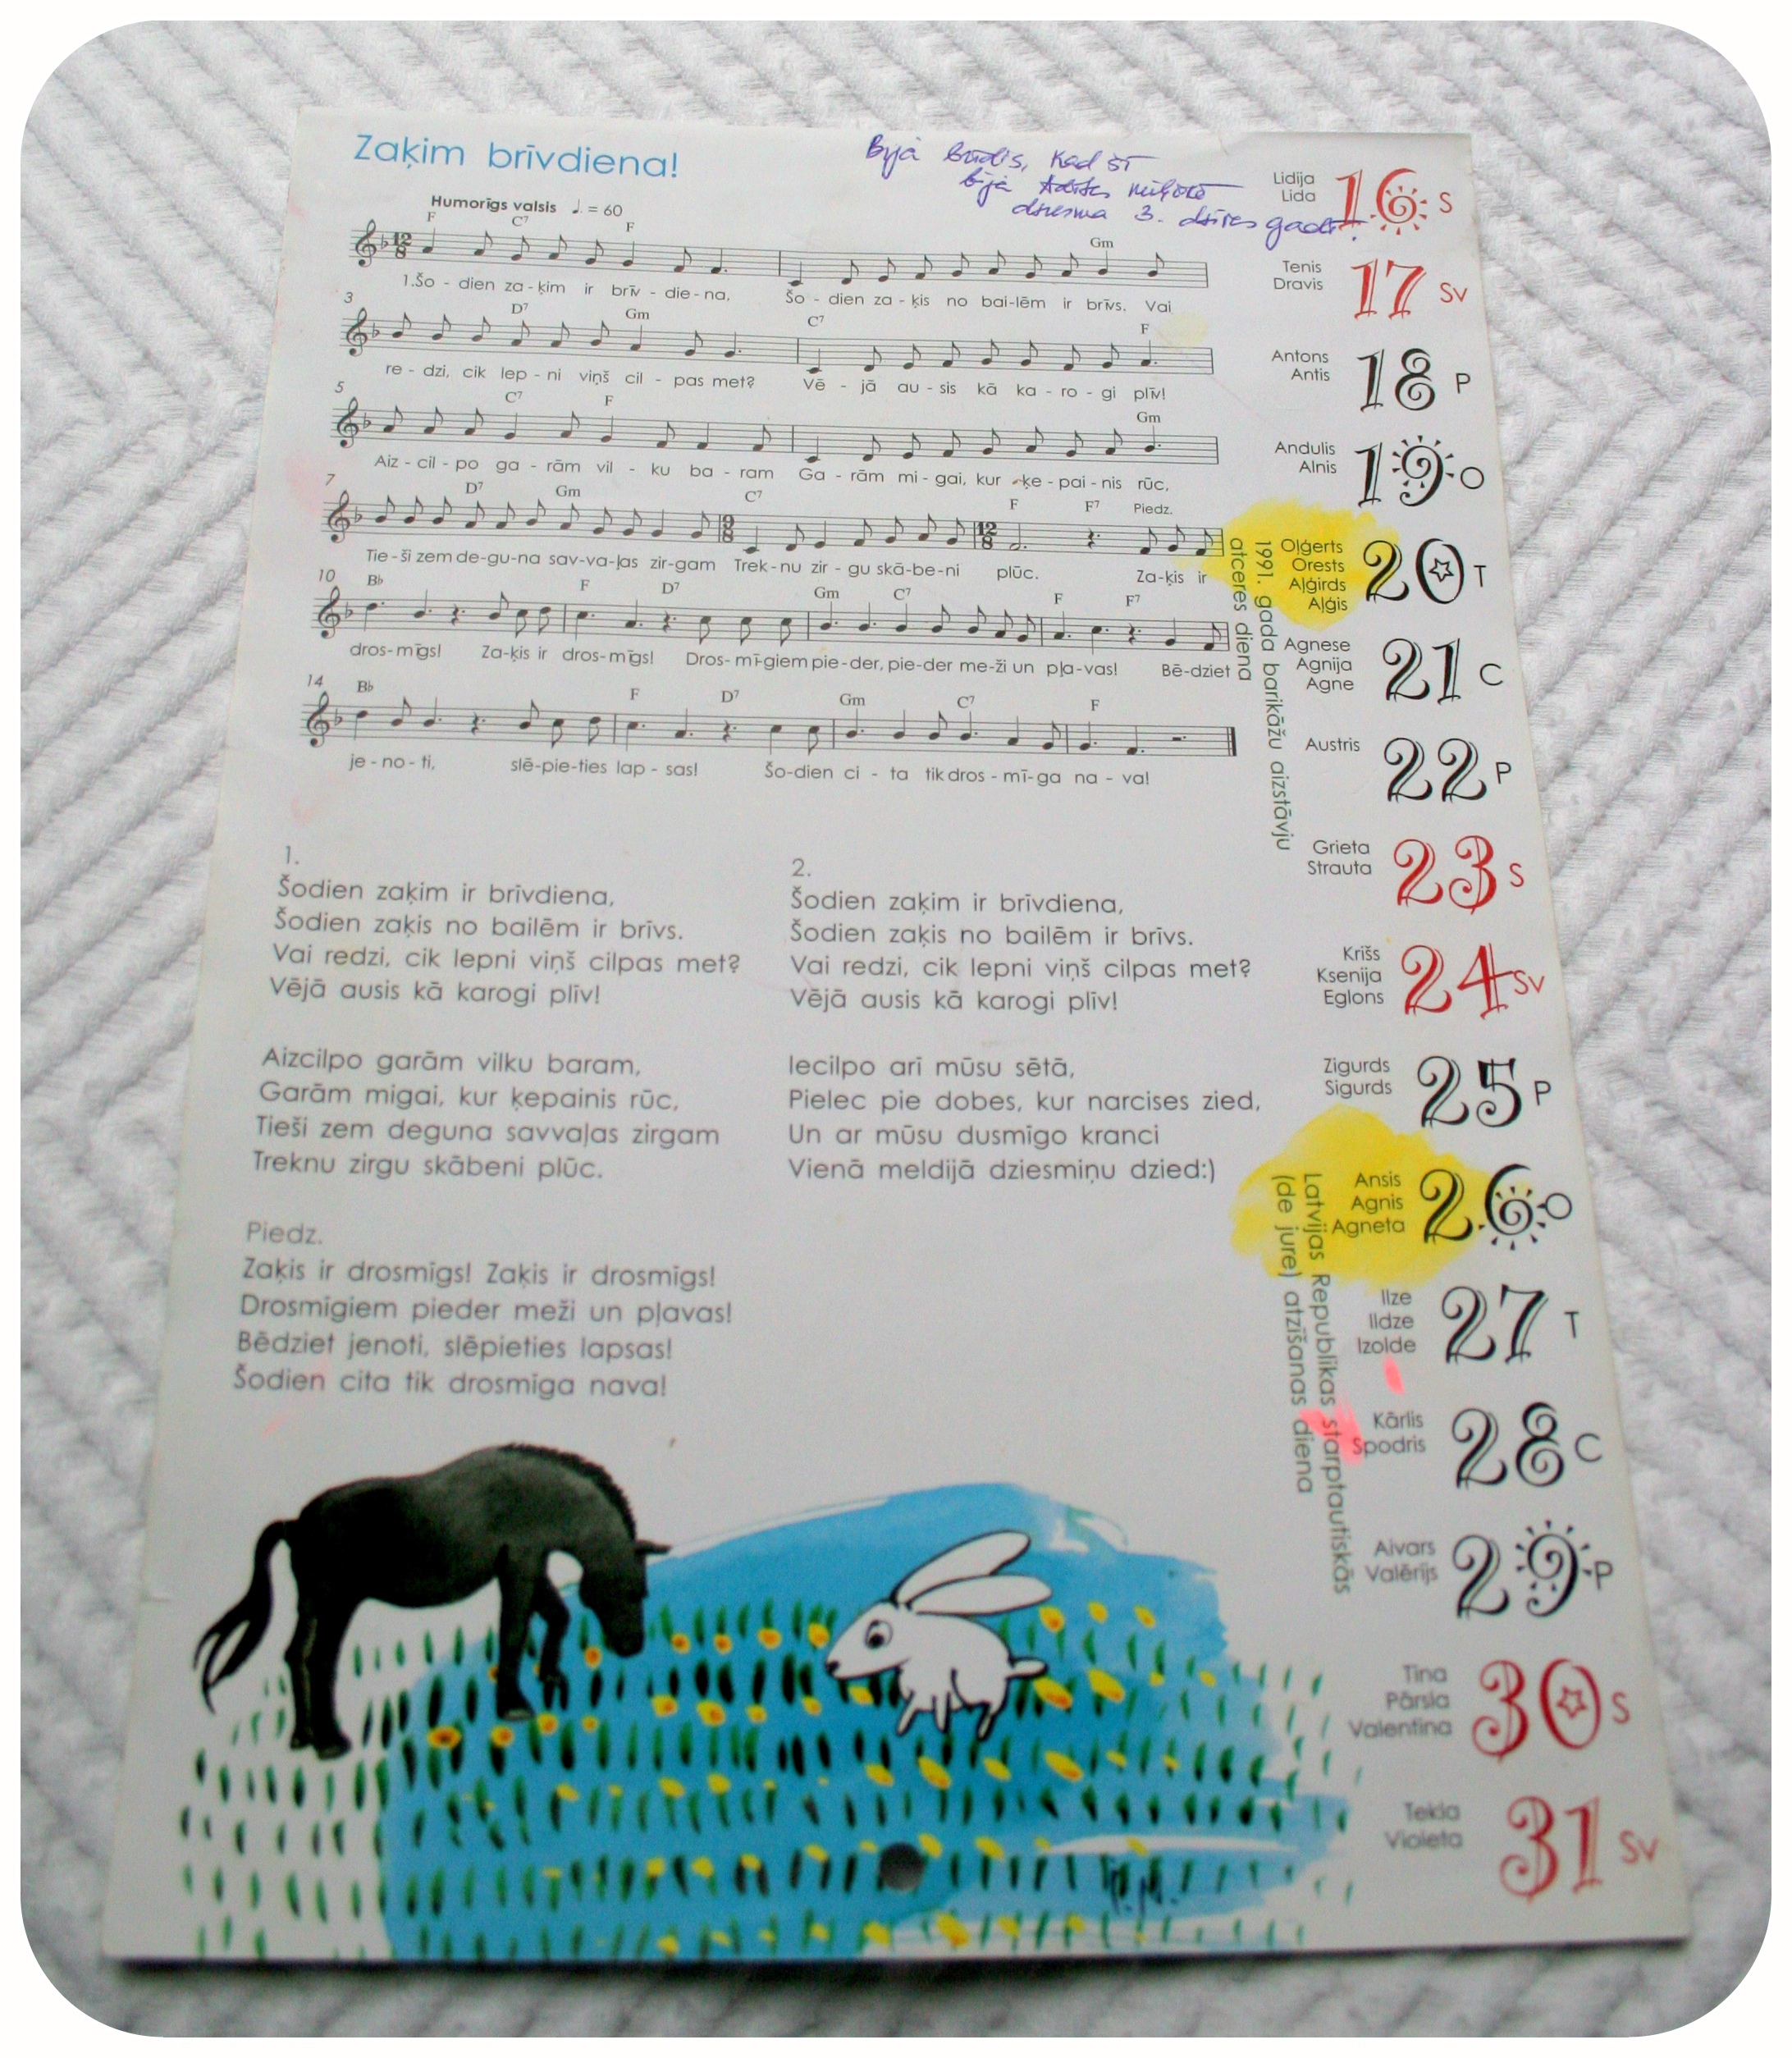 Zaķim brīvdiena!
bija
dziesma 3. dzīves gadā!
Humorīgs valsis ♩. = 60
F C⁷ F Gm
12
8
1.Šo - dien za - ķim ir brīv - die - na, Šo - dien za - ķis no bai - lēm ir brīvs. Vai
3
D⁷ Gm C⁷ F
re - dzi, cik lep - ni viņš cil - pas met? Vē - jā au - sis kā ka - ro - gi plīv!
5
C⁷ F Gm
Aiz - cil - po ga - rām vil - ku ba - ram Ga - rām mi - gai, kur ķe - pai - nis rūc,
7
D⁷ Gm C⁷ F F⁷ Piedz.
9
8
12
8
Tie - ši zem de - gu - na sav - va - ļas zir - gam Trek - nu zir - gu skā - be - ni plūc. Za - ķis ir
10
B♭ F D⁷ Gm C⁷ F F⁷
dros - mīgs! Za - ķis ir dros - mīgs! Dros - mī - giem pie - der, pie - der me - ži un pļa - vas! Bē - dziet
14
B♭ F D⁷ Gm C⁷ F
je - no - ti, slē - pie - ties lap - sas! Šo - dien ci - ta tik dros - mī - ga na - va!
1.
Šodien zaķim ir brīvdiena,
Šodien zaķis no bailēm ir brīvs.
Vai redzi, cik lepni viņš cilpas met?
Vējā ausis kā karogi plīv!
Aizcilpo garām vilku baram,
Garām migai, kur ķepainis rūc,
Tieši zem deguna savvaļas zirgam
Treknu zirgu skābeni plūc.
Piedz.
Zaķis ir drosmīgs! Zaķis ir drosmīgs!
Drosmīgiem pieder meži un pļavas!
Bēdziet jenoti, slēpieties lapsas!
Šodien cita tik drosmīga nava!
2.
Šodien zaķim ir brīvdiena,
Šodien zaķis no bailēm ir brīvs.
Vai redzi, cik lepni viņš cilpas met?
Vējā ausis kā karogi plīv!
Iecilpo arī mūsu sētā,
Pielec pie dobes, kur narcises zied,
Un ar mūsu dusmīgo kranci
Vienā meldijā dziesmiņu dzied:)
Lidija
Lida
16 S
Tenis
Dravis
17 Sv
Antons
Antis
18 P
Andulis
Alnis
19 O
Oļģerts
Orests
Aļģirds
Aļģis
20 T
1991. gada barikāžu aizstāvju
atceres diena
Agnese
Agnija
Agne
21 C
Austris
22 P
Grieta
Strauta
23 S
Krišs
Ksenija
Eglons
24 Sv
Zigurds
Sigurds
25 P
Ansis
Agnis
Agneta
26 O
Latvijas Republikas starptautiskās
(de jure) atzīšanas diena
Ilze
Ildze
Izolde
27 T
Kārlis
Spodris
28 C
Aivars
Valērijs
29 P
Tina
Pārsla
Valentīna
30 S
Tekla
Violeta
31 Sv